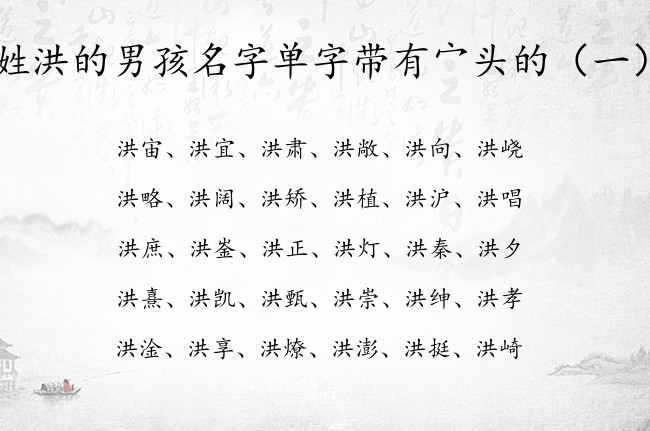 姓洪的男孩名字单字带有宀头的（一）
洪宙、洪宜、洪肃、洪敞、洪向、洪峣
洪略、洪阔、洪矫、洪植、洪沪、洪唱
洪庶、洪崟、洪正、洪灯、洪秦、洪夕
洪熹、洪凯、洪甄、洪崇、洪绅、洪孝
洪淦、洪享、洪燎、洪澎、洪挺、洪崎